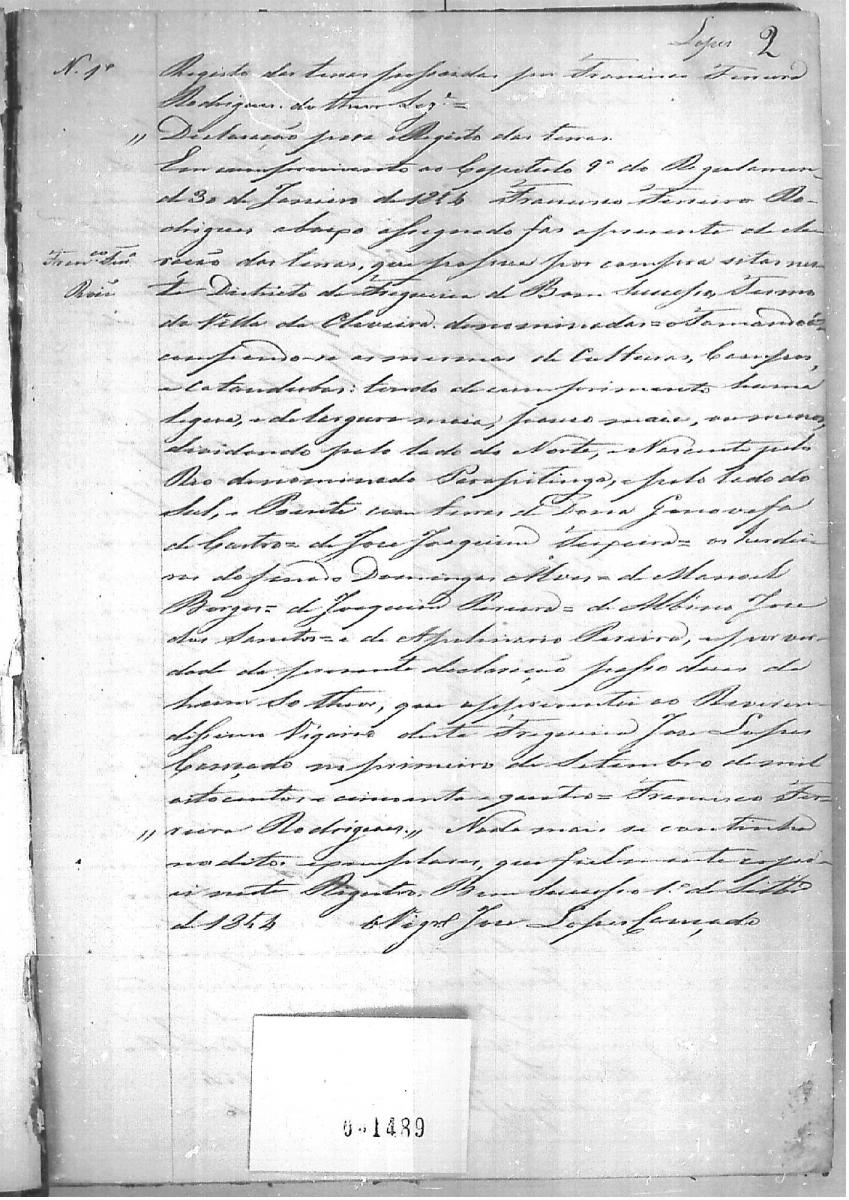 Lopes 2
N. 1º Registo das terras possuidas por Francisco Ferreira
Rodrigues do theor Seg.e =
„ Declaração para o Registo das terras.
Em cumprimento ao Capitulo 9º do Regulamen-
d 30 de Janeiro de 1854 Francisco Ferreira Ro-
drigues abaixo assignado faz apresente decla
Franco. Frra. ração das terras, que possue por compra sitas nes-
Roiz te Districto da Freguesia de Bom Successo, Termo
da Villa da Oliveira denominadas = o Tamanduá =
compondo-se as mesmas de Culturas, Campos,
e Catandubas: tendo de comprimento huma
legoa, e de largura meia, pouco mais, ou menos,
dividindo pelo lado do Norte, e Nascente pelo
Rio denominado Parapitinga, e pelo lado do
Sul, e Poente com terras de Dona Genovefa
de Castro = de Jose Joaquim Teixeira = os herdei-
ros do finado Domingos Alves = de Manoel
Borges = de Joaquim Pereira = de Albino Jose
dos Santos = e de Apolinario Pereira, e por ver-
dade da presente declaração passo duas de
hum So theor, que appresentei ao Reveren-
dissimo Vigario desta Freguesia Jose Lopes
Cançado no primeiro de Setembro de mil
oitocentos e cincoenta e quatro = Francisco Fer-
„ reira Rodrigues. „ Nada mais se continha
nos ditos exemplares, que fielmente copi-
ei neste Registro. Bom Successo 1º de Setbro
d 1854 O Vigrº Jose Lopes Cançado
0-1489